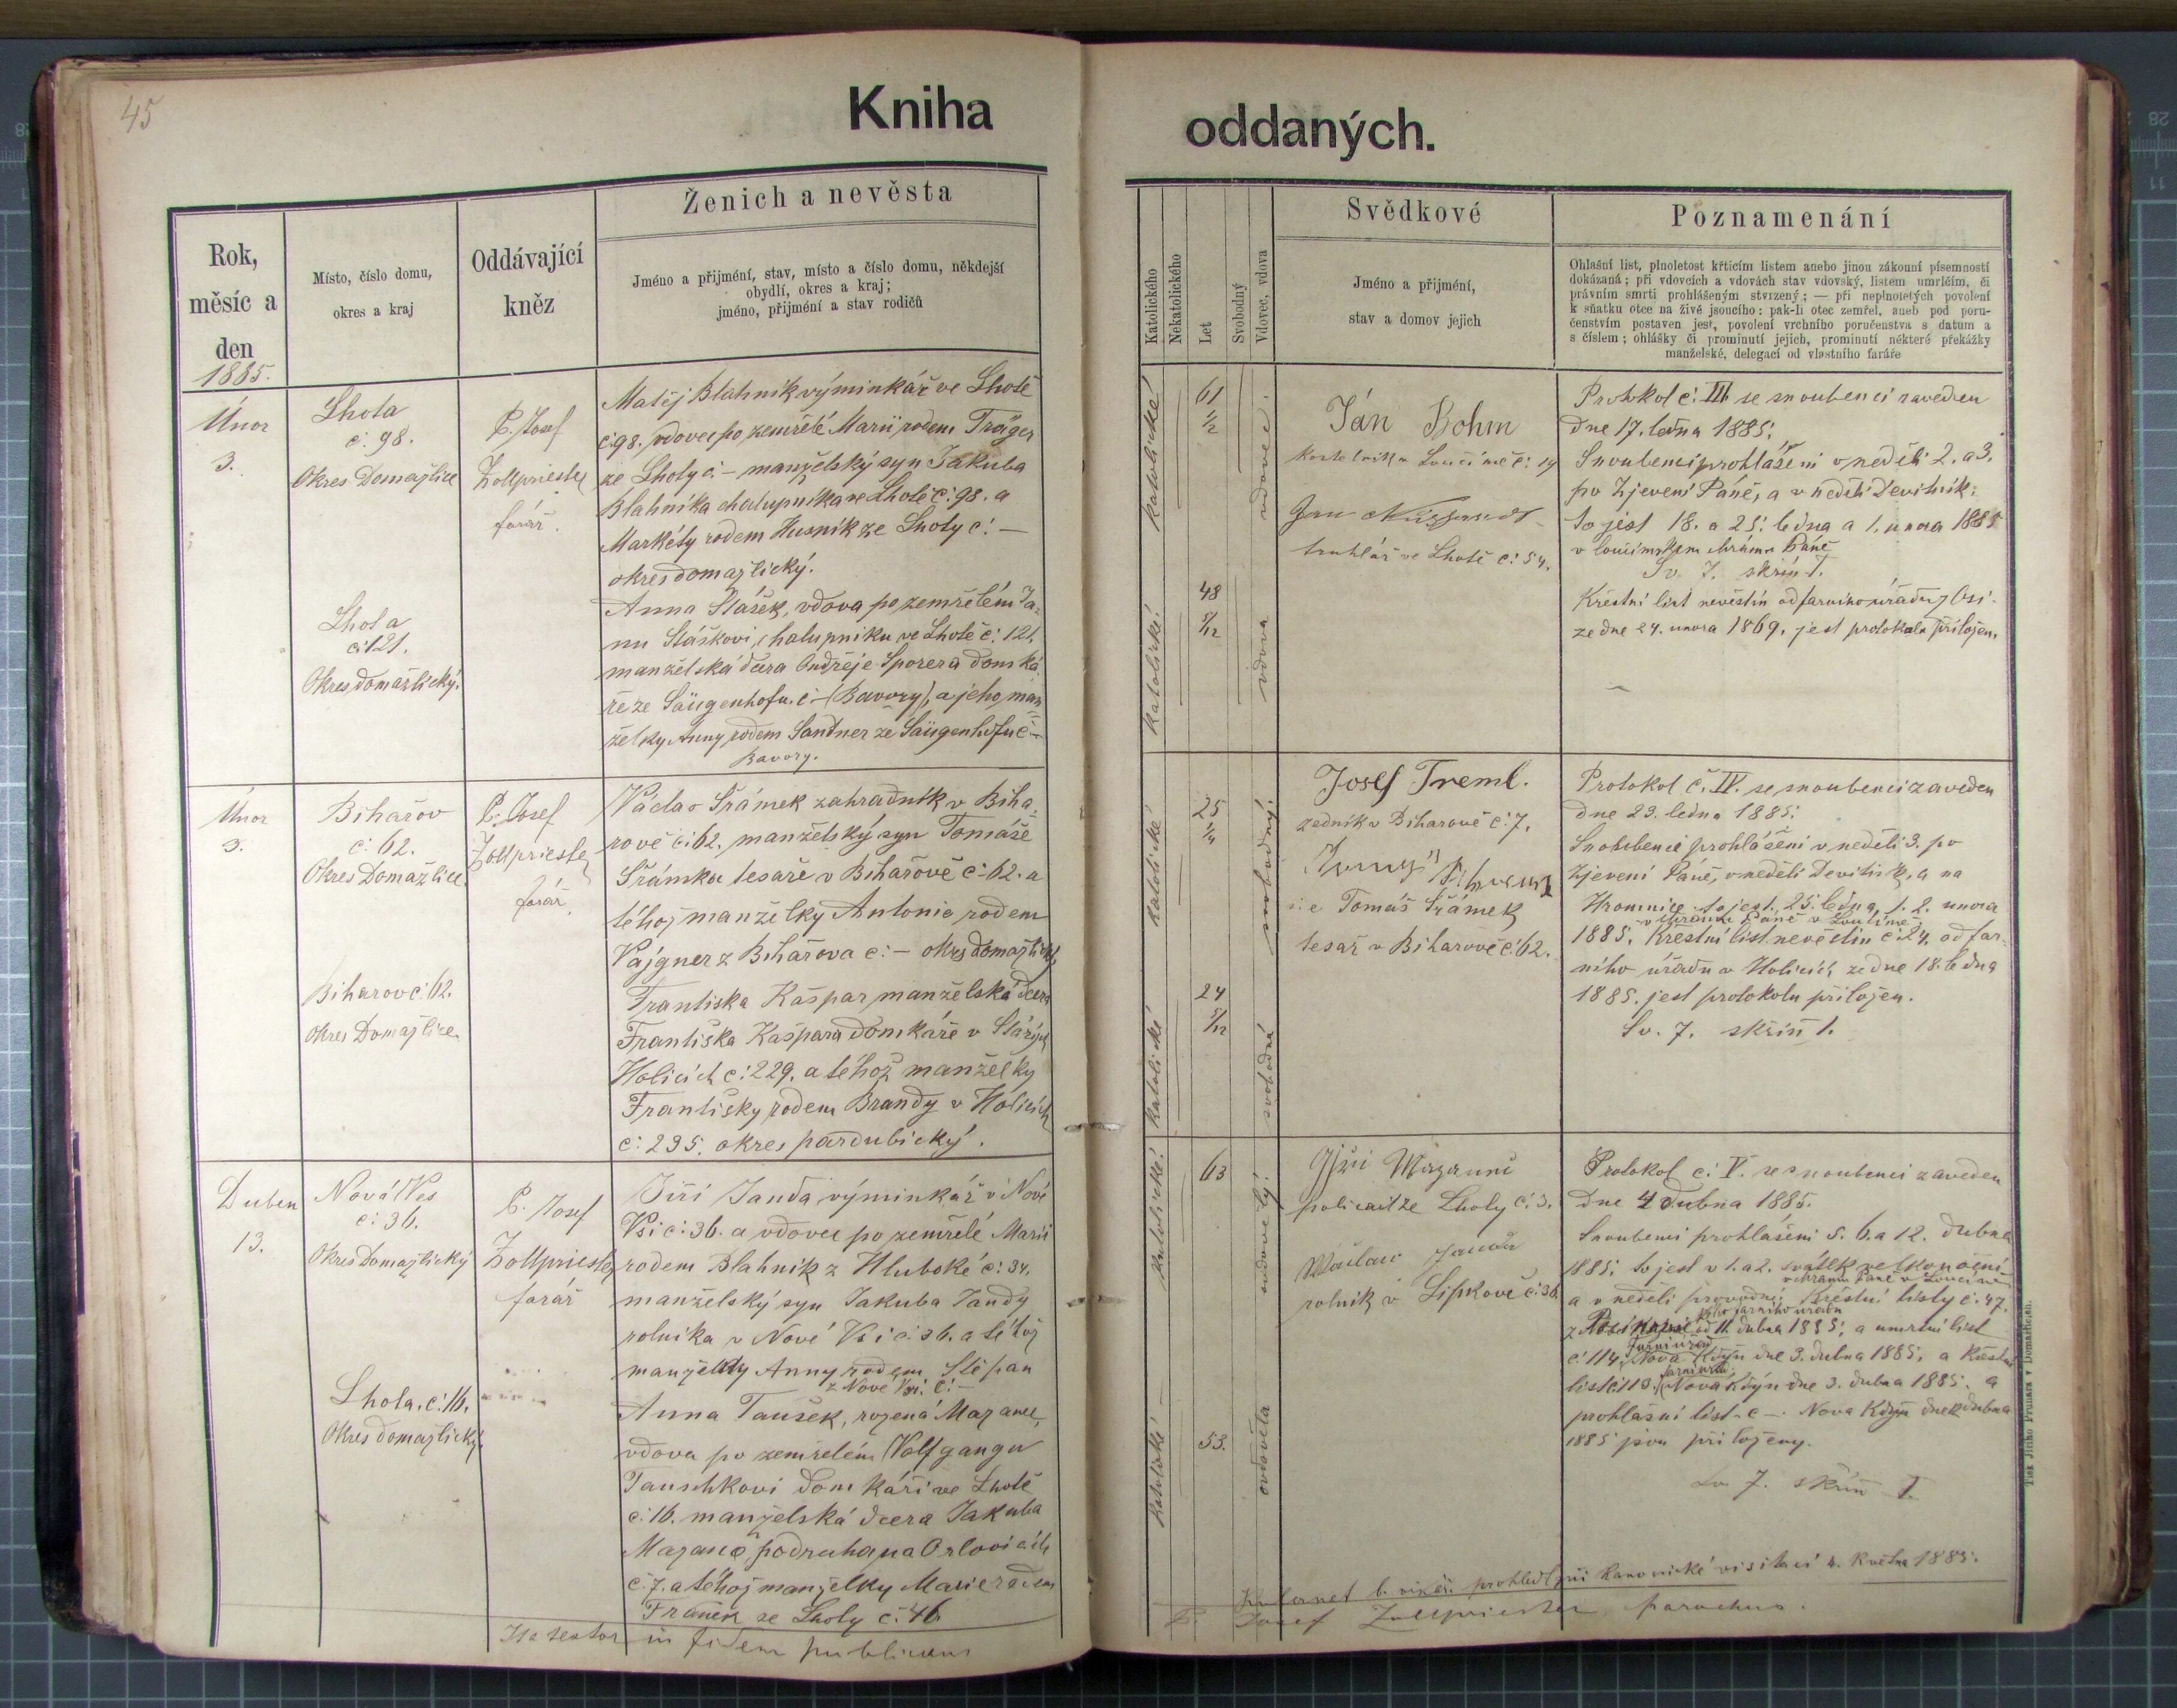 45
Kniha
oddaných.
Rok,
měsíc a
den
1885.
Místo, číslo domu,
okres a kraj
Oddávající
kněz
Ženich a nevěsta
Jméno a přijmění, stav, místo a číslo domu, někdejší
obydlí, okres a kraj;
jméno, přijmění a stav rodičů
Katolického
Nekatolického
Let
Svobodný
Vdovec, vdova
Svědkové
Jméno a přijmění,
stav a domov jejich
Poznamenání
Ohlašní list, plnoletost křticím listem anebo jinou zákonní písemností
dokázaná; při vdovcích a vdovách stav vdovský, listem umrlčím, či
právním smrti prohlášeným stvrzený; — při neplnoletých povolení
k sňatku otce na živě jsoucího: pak-li otec zemřel, aneb pod poru-
čenstvím postaven jest, povolení vrchního poručenstva s datum a
s číslem; ohlášky či prominutí jejich, prominutí některé překážky
manželské, delegací od vlastního faráře
Únor
3.
Lhota
č. 98.
Okres Domažlice
P. Josef
Zollpriester
farář.
Matěj Blahník výminkář ve Lhotě
č. 98. vdovec po zemřelé Marii rodem Träger
ze Lhoty č. – manželský syn Jakuba
Blahníka chalupníka ve Lhotě č. 98. a
Markéty rodem Husník ze Lhoty č. –
okres domažlický.
Lhota
č. 121.
Okres domažlický.
Anna Stášek, vdova po zemřelém Ja-
nu Stáškovi, chalupníku ve Lhotě č. 121.
manželská dcera Ondřeje Sporera domká-
ře ze Säugenhofu. č – (Bavory), a jeho man-
želky Anny rodem Sandner ze Säugenhofu č –
Bavory.
katolické
61
1/2
vdovec.
katolické.
48
5/12
vdova
Ján Bohm
kostelník v Loučimě č. 19
Jan
truhlář ve Lhotě č. 54.
Protokol č. III se snoubenci zaveden
dne 17. ledna 1885.
Snoubenci prohlášeni v neděli 2. a 3.
po Zjevení Páně, a v neděli Devítník:
to jest 18. a 25. ledna a 1. unora 1885
v loučimském chrámu Páně
Sv. 7. skříň I.
Křestní list nevěstin od farního úřadu
ze dne 24. unora 1869. jest protokolu přiložen.
Únor
3.
Bihařov
č. 62.
Okres Domažlice.
P. Josef
Zollpriester
farář.
Václav Šrámek zahradník v Biha-
rově č. 62. manželský syn Tomáše
Šrámka tesaře v Bihařově č. 62. a
téhož manželky Antonie rodem
Vajgner z Bihařova č. – okres domažlický
Biharov č. 62.
okres Domažlice
Františka Kašpar manželská dcera
Františka Kašpara domkáře v Starých
Holicích č. 229. a téhož manželky
Františky rodem Brandy v Holicích
č. 295. okres pardubický.
katolické
25
1/4
svobodný.
katolické
24
5/12
svobodná
Josef Treml.
zedník v Biharově č. 7.
Tomáš Šrámek
tesař v Biharově č. 62.
Protokol č. IV. se snoubenci zaveden
dne 23. ledna 1885.
Snoubenci prohlášeni v neděli 3. po
Zjevení Páně, v neděli Devítník, a na
Hromnice to jest. 25. ledna, 1. 2. unora
v chrámu Páně v Loučimě
1885. Křestní list nevěstin č. 24. od far-
ního úřadu v Holicích ze dne 18. ledna
1885. jest protokolu přiložen.
Sv. 7. skříň I.
Duben
13.
Nová Ves
č. 36.
Okres Domažlický
P. Josef
Zollpriester
farář
Jiří Janda výminkář v Nové
Vsi č. 36. a vdovec po zemřelé Marii
rodem Blahník z Hluboké č. 34.
manželský syn Jakuba Jandy
rolníka v Nové Vsi č. 36. a téhož
manželky Anny rodem Štěpan
z Nové Vsi. č. –
Lhota. č. 16.
Okres domažlický.
Anna Taušek, rozená Mazanec,
vdova po zemřelém Wolfgangu
Tauschkovi domkáři ve Lhotě
č. 16. manželská dcera Jakuba
Mazance, podruha na Orlovicích
č. 7. a téhož manželky Marie rodem
Franěk ze Lhoty č. 46
katolické.
63
ovdovělý.
katolické
53.
ovdovělá
policait ze Lhoty č. 3.
Waclaw Janda
rolník v Lipkově č. 36.
Protokol č. V. se snoubenci zaveden
dne 4 dubna 1885.
Snoubenci prohlášeni 5. 6. a 12. dubna
1885. to jest v 1. a 2. svátek velkonoční
v chrámu Páně v Loučimě
a v neděli provodní. Křestní listy č. 47.
od 11. dubna 1885. a umrtní list
č. 114. Nova Kdyň dne 3. dubna 1885. a Křestní
list č. 113. Nova Kdyň dne 3. dubna 1885. a
prohlašní list č – Nova Kdyň dne dubna
1885 jsou přiloženy.
Sv 7. skříň I.
prohledl při kanonické visitaci 4. Května 1885.
Ita testor in fidem publicam
P. Josef Zollpriester parochus.
Tisk Jiřího Prunara v Domažlicích.